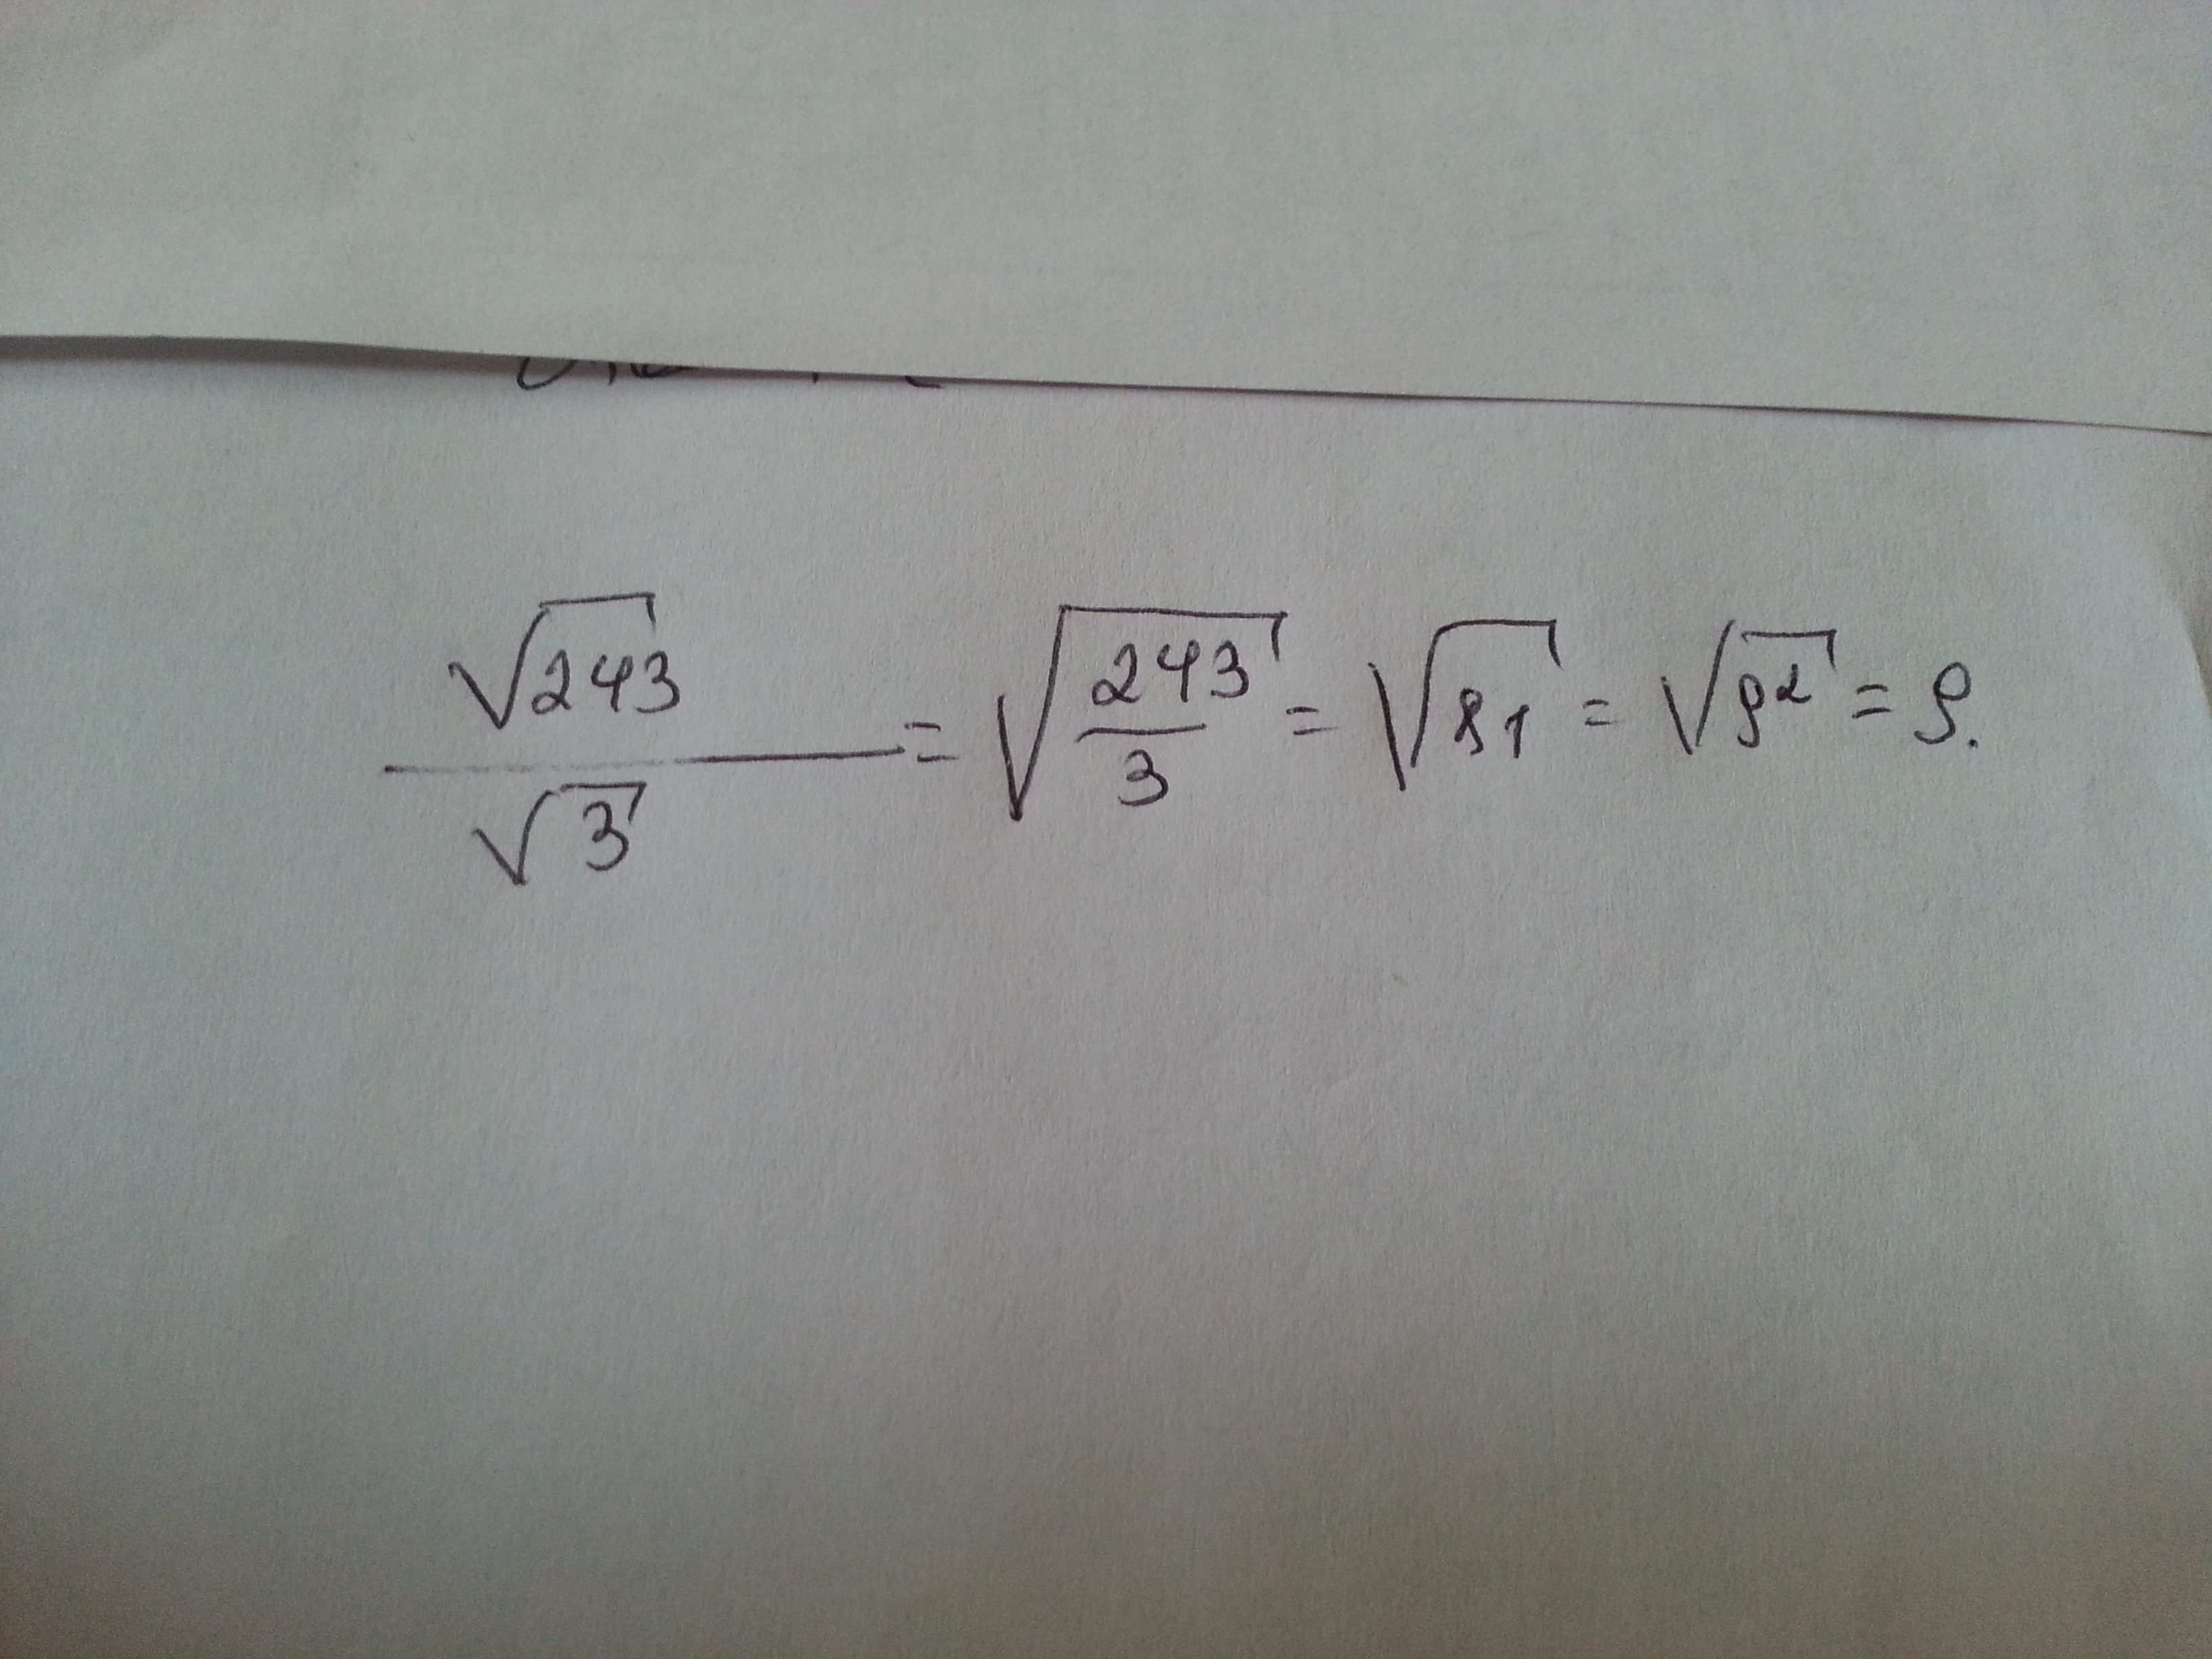 √243 / √3 = √(243/3) = √81 = √9² = 9.